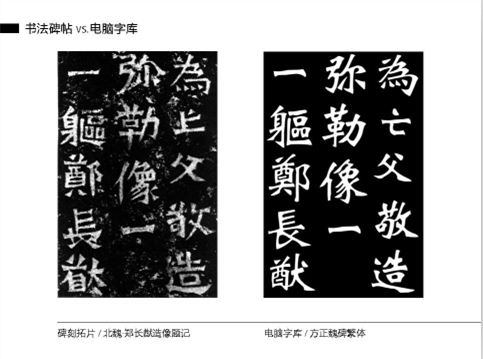 书法碑帖 vs.电脑字库
為亡父敬造
弥勒像一
一軀鄭長猷
為亡父敬造
弥勒像一
一軀鄭長猷
碑刻拓片 / 北魏·郑长猷造像题记
电脑字库 / 方正魏碑繁体